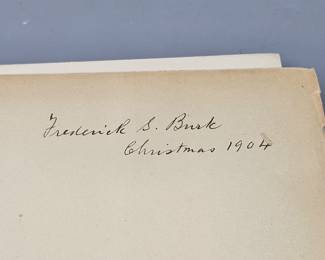 Frederick S. Burk
Christmas 1904